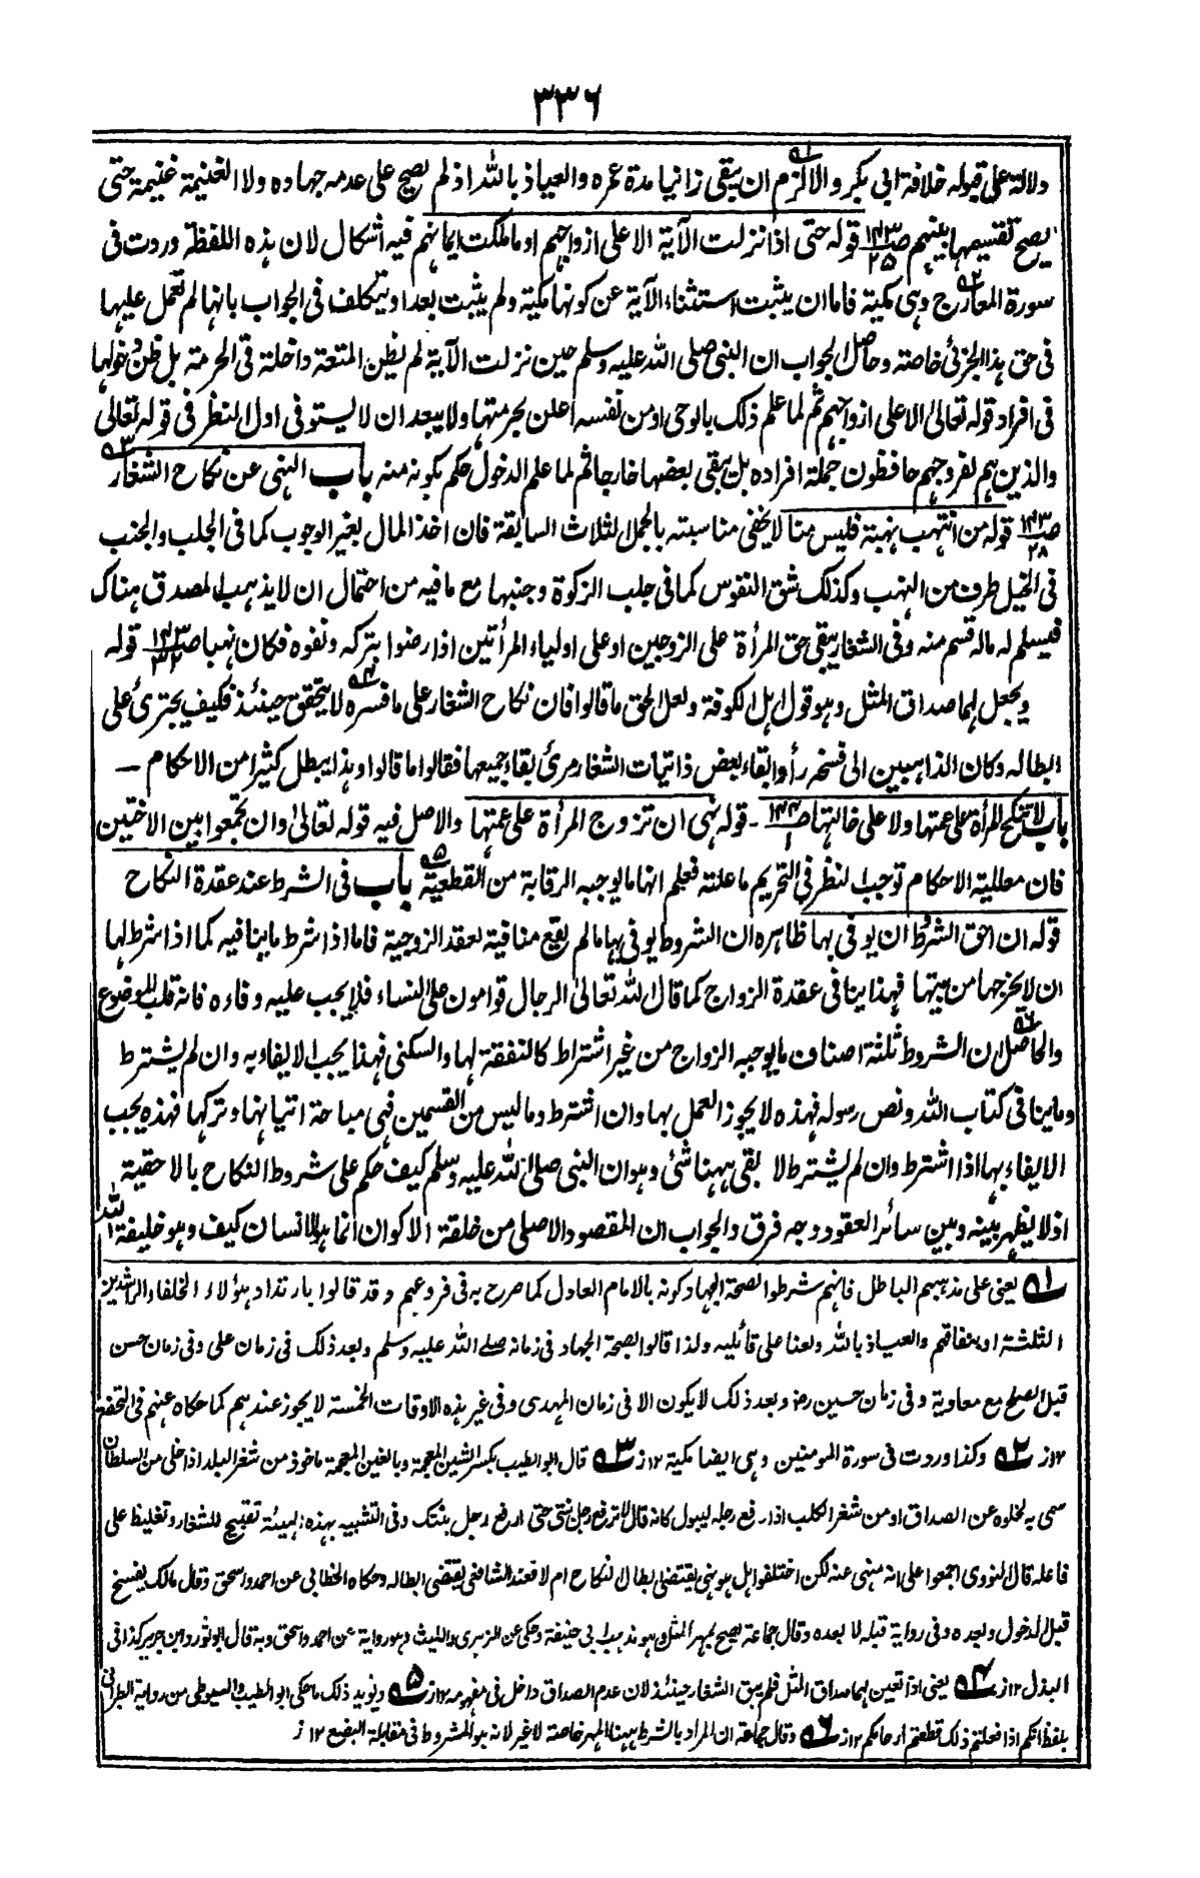 ٣٣٦
دلالة على قبوله خلافة ابى بكر والا لزم ان يبقى زانيا مدة عمره والعياذ بالله اذ لم يصح على عدمه جهاده ولا الغنيمة غنيمة حتى
يصح تقسيمها بينهم صـ١٣٣/٢٥ قوله حتى اذا نزلت الآية الا على ازواجهم او ما ملكت ايمانهم فيه اشكال لان هذه اللفظة وردت فى
سورة المعارج وهى مكية فاما ان يثبت استثناء الآية عن كونها مكية ولم يثبت بعد او يتكلف فى الجواب بانها لم تعمل عليها
فى حق هذا الجزئى خاصة وحاصل الجواب ان النبى صلى الله عليه وسلم حين نزلت الآية لم يظن المتعة داخلة فى الحرمة بل ظن دخولها
فى افراد قوله تعالى الا على ازواجهم ثم لما علم ذلك بالوحى او من نفسه اعلن بحرمتها ولا يبعد ان لا يستوفى اول النظر فى قوله تعالى
والذين هم لفروجهم حافظون جملة افراده بل يبقى بعضها خارجا ثم لما علم الدخول حكم بكونه منه باب النهى عن نكاح الشغار
صـ١٣٣/٢٨ قوله من انتهب نهبة فليس منا لا يخفى مناسبته بالجمل الثلاث السابقة فان اخذ المال بغير الوجوب كما فى الجلب والجنب
فى الخيل طرف من النهب وكذلك شق النفوس كما فى جلب الزكوة وجنبها مع ما فيه من احتمال ان لا يذهب المصدق هناك
فيسلم له ماله قسم منه وفى الشغار يبقى حق المرأة على الزوجين او على اولياء المرأتين اذا رضوا بتركه ونفوه فكان نهبا صـ١٣٣/٣٢ قوله
ويجعل لهما صداق المثل وهو قول اهل الكوفة ولعل الحق ما قالوا فان نكاح الشغار على ما فسره لا يتحقق حينئذ فكيف يجترئ على
ابطاله وكان الذاهبين الى فسخه رأوا ابقاء بعض ذاتيات الشغار مرئ بقاء جميعها فقالوا ما قالوا وهذا يبطل كثيرا من الاحكام —
باب لا تنكح المرأة على عمتها ولا على خالتها صـ١٣٤/١ - قوله نهى ان تزوج المرأة على عمتها والاصل فيه قوله تعالى وان تجمعوا بين الاختين
فان معللية الاحكام توجب النظر فى التحريم ما علته فعلم انها ما يوجبه الرقابة من القطعية باب فى الشرط عند عقدة النكاح
قوله ان احق الشروط ان يوفى بها ظاهره ان الشروط يوفى بها ما لم يقع منافية لعقد الزوجية فاما اذا شرط ما ينافيه كما اذا شرط لها
ان لا يخرجها من بيتها فهذا ينافى عقدة الزواج كما قال الله تعالى الرجال قوامون على النساء فلا يجب عليه وفاءه فانه قلب الموضوع
والحاصل ان الشروط ثلثة اصناف ما يوجبه الزواج من غير اشتراط كالنفقة لها والسكنى فهذا يجب الايفاء به وان لم يشترط
وما ينافى كتاب الله ونص رسوله فهذه لا يجوز العمل بها وان اشترط وما ليس من القسمين فهى مباحة اتيانها وتركها فهذه يجب
الايفاء بها اذا اشترط وان لم يشترط لا بقى ههنا شئ وهو ان النبى صلى الله عليه وسلم كيف حكم على شروط النكاح بالاحقية
اذ لا يظهر بينه وبين سائر العقود وجه فرق والجواب ان المقصود الاصلى من خلقة الاكوان انما هو الانسان كيف وهو خليفة الله
١ـه يعنى على مذهبهم الباطل فانهم شرطوا لصحة الجهاد كونه بالامام العادل كما صرح به فى فروعهم وقد قالوا بارتداد هؤلاء الخلفاء الراشدين
الثلثة او بنفاقهم والعياذ بالله ولعنا على قائليه ولذا قالوا بصحة الجهاد فى زمانه صلے الله عليه وسلم وبعد ذلك فى زمان على وفى زمان حسن
قبل الصلح مع معاوية وفى زمان حسين رض وبعد ذلك لا يكون الا فى زمان المهدى وفى غير هذه الاوقات الخمسة لا يجوز عندهم كما حكاه عنهم فى التحفة
١٢ز ٢ـه وكذا وردت فى سورة المومنين وهى ايضا مكية ١٢ز ٣ـه قال ابو الطيب بكسر الشين المعجمة وبالغين المعجمة ماخوذ من شغر البلد اذا خلى من السلطان
سمى به لخلوه عن الصداق او من شغر الكلب اذا رفع رجله ليبول كانه قال لا ترفع رجل بنتى حتى ارفع رجل بنتك وفى التشبيه بهذه الهيئة تقبيح للشغار وتغليظ على
فاعله قال النووى اجمعوا على انه منهى عنه لكن اختلفوا هل هو نهى يقتضى ابطال النكاح ام لا فعند الشافعى يقتضى ابطاله وحكاه الخطابى عن احمد واسحق وقال مالك يفسخ
قبل الدخول وبعده وفى رواية قبله لا بعده وقال جماعة يصح بمهر المثل وهو مذهب ابى حنيفة وحكى عن الزهرى والليث وهو رواية عن احمد واسحق وبه قال ابو ثور وابن جرير كذا فى
البذل ١٢ز ٤ـه يعنى اذا تعين لهما صداق المثل فلم يبق الشغار حينئذ لان عدم الصداق داخل فى مفهومه ١٢ز ٥ـه ويؤيد ذلك ما حكى ابو الطيب والسيوطى من رواية الطبرانى
بلفظ انكم اذا فعلتم ذلك قطعتم ارحامكم ١٢ز ٦ـه وقال جماعة ان المراد بالشرط ههنا المهر خاصة لا غير لانه هو المشروط فى مقابلة البضع ١٢ ز